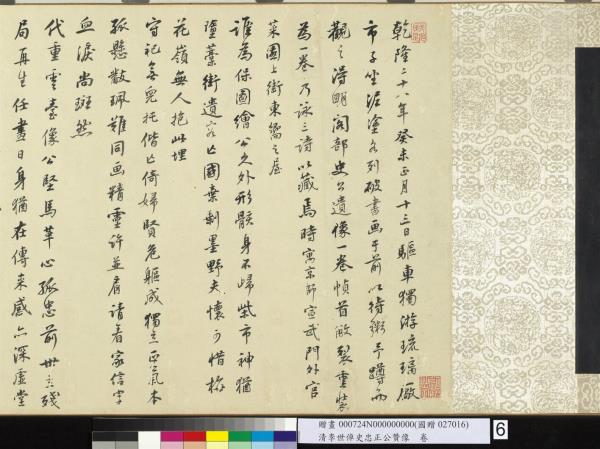 乾隆二十八年癸未正月十三日驅車獨游琉璃廠
市子坐泥塗各列破書画于前以待鬻予蹲而
觀之得明閣部史公遺像一卷幀首敝裂重裝
為一卷乃詠三詩以藏焉時寓京師宣武門外官
菜園上街東衚之屋
誰為保圖繪公之外形骸身不歸柴市神猶
墮藁街遺容亡國棄剩墨野夫懷可惜梅
花嶺無人抱此埋
守祀無兒托偕亡倚婦賢危軀成獨立正氣本
孤懸數珮難同画精靈許並肩請看家信字
血淚尚斑然
代重雲臺像公堅馬革心孤忠前世立殘
局再生任晝日身猶在傳來感亦深虛堂
贈畫 000724N000000000(國贈 027016)
清李世倬史忠正公贊像 卷
6